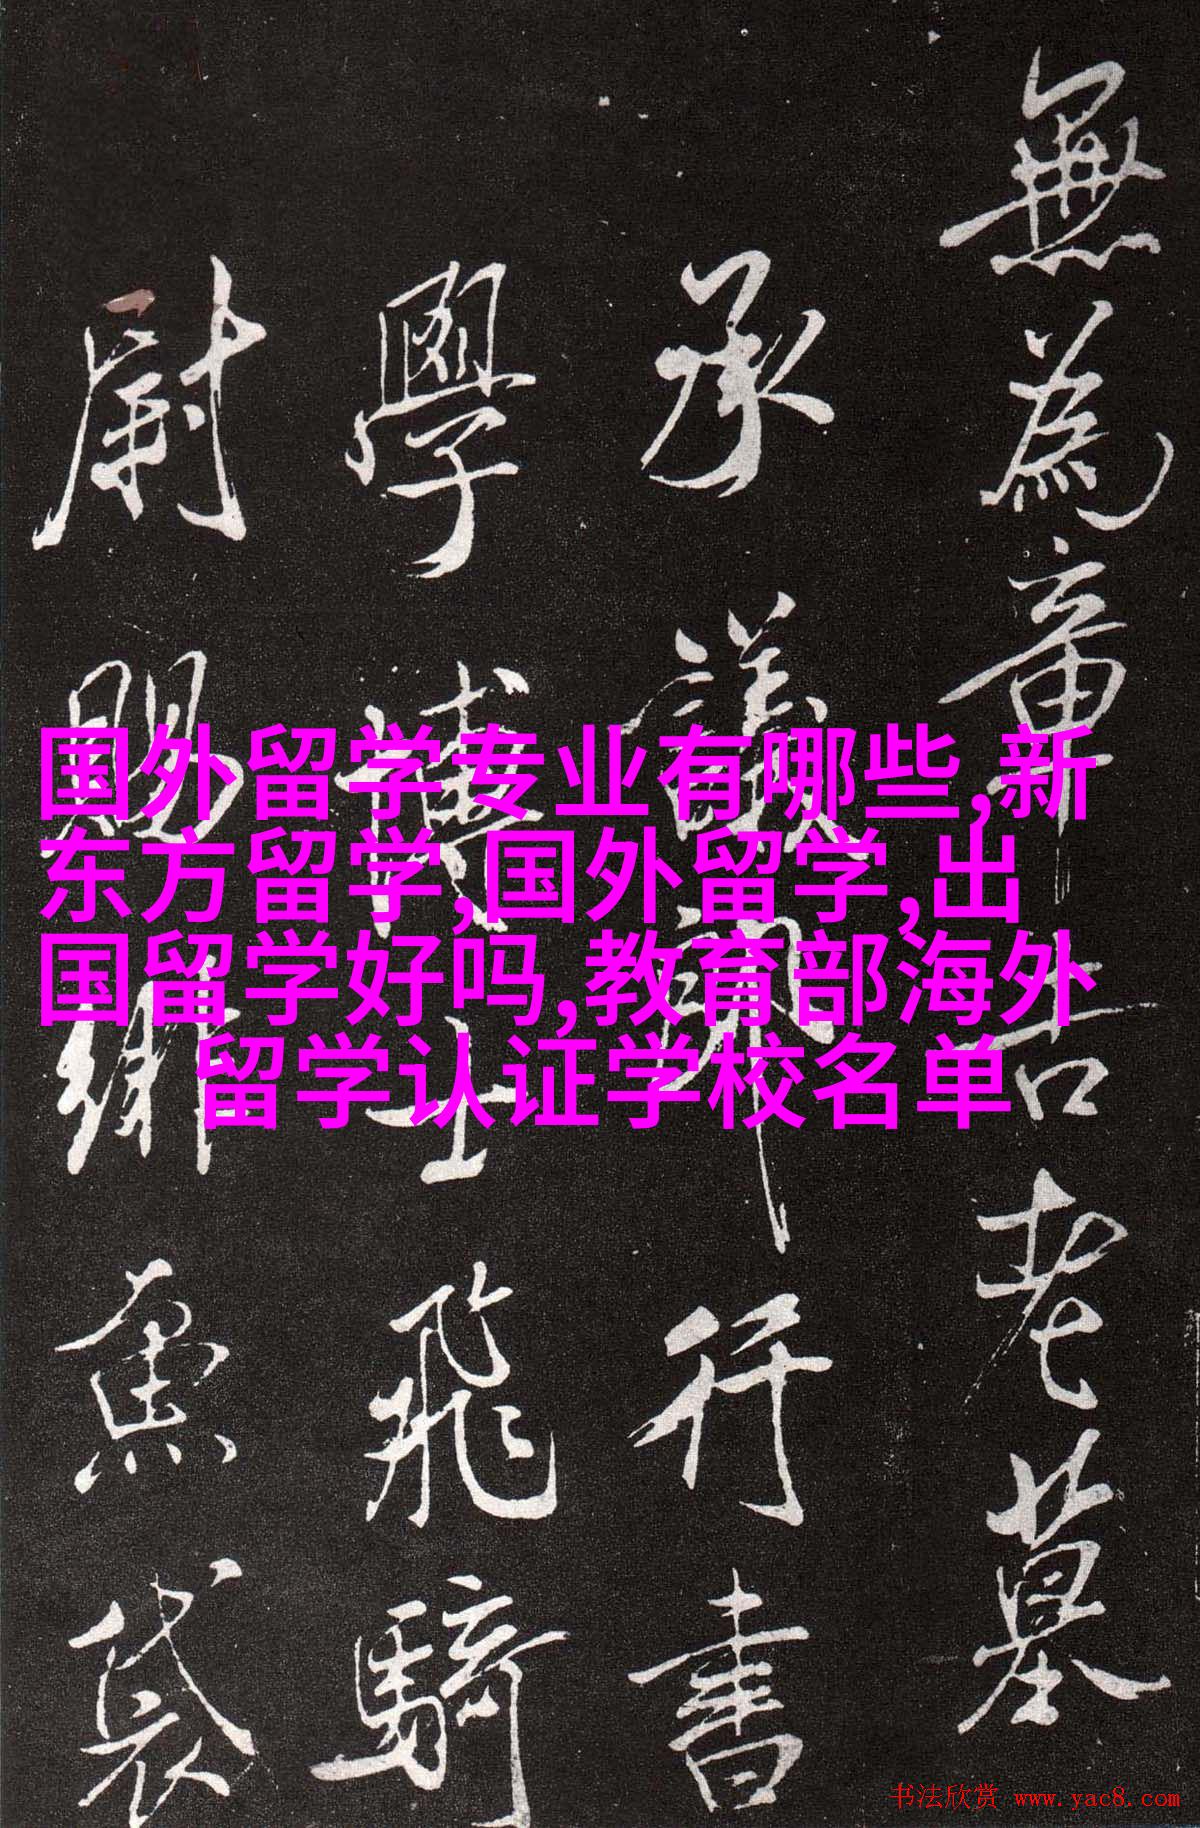 無為章吉老墓
承議郎行書
學博士飛騎
尉賜緋魚袋
国外留学专业有哪些,新
东方留学,国外留学,出
国留学好吗,教育部海外
留学认证学校名单
书法欣赏 www.yac8.com